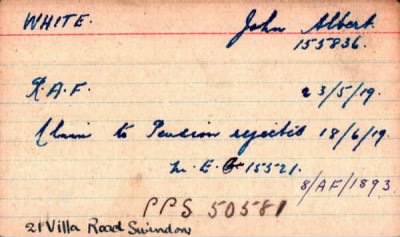 WHITE. John Albert.
155836.
R.A.F. 23/5/19.
Claim to Pension rejected 18/6/19.
M.E. 15521.
8/AF/1893.
PPS 50581
21 Villa Road Swindon